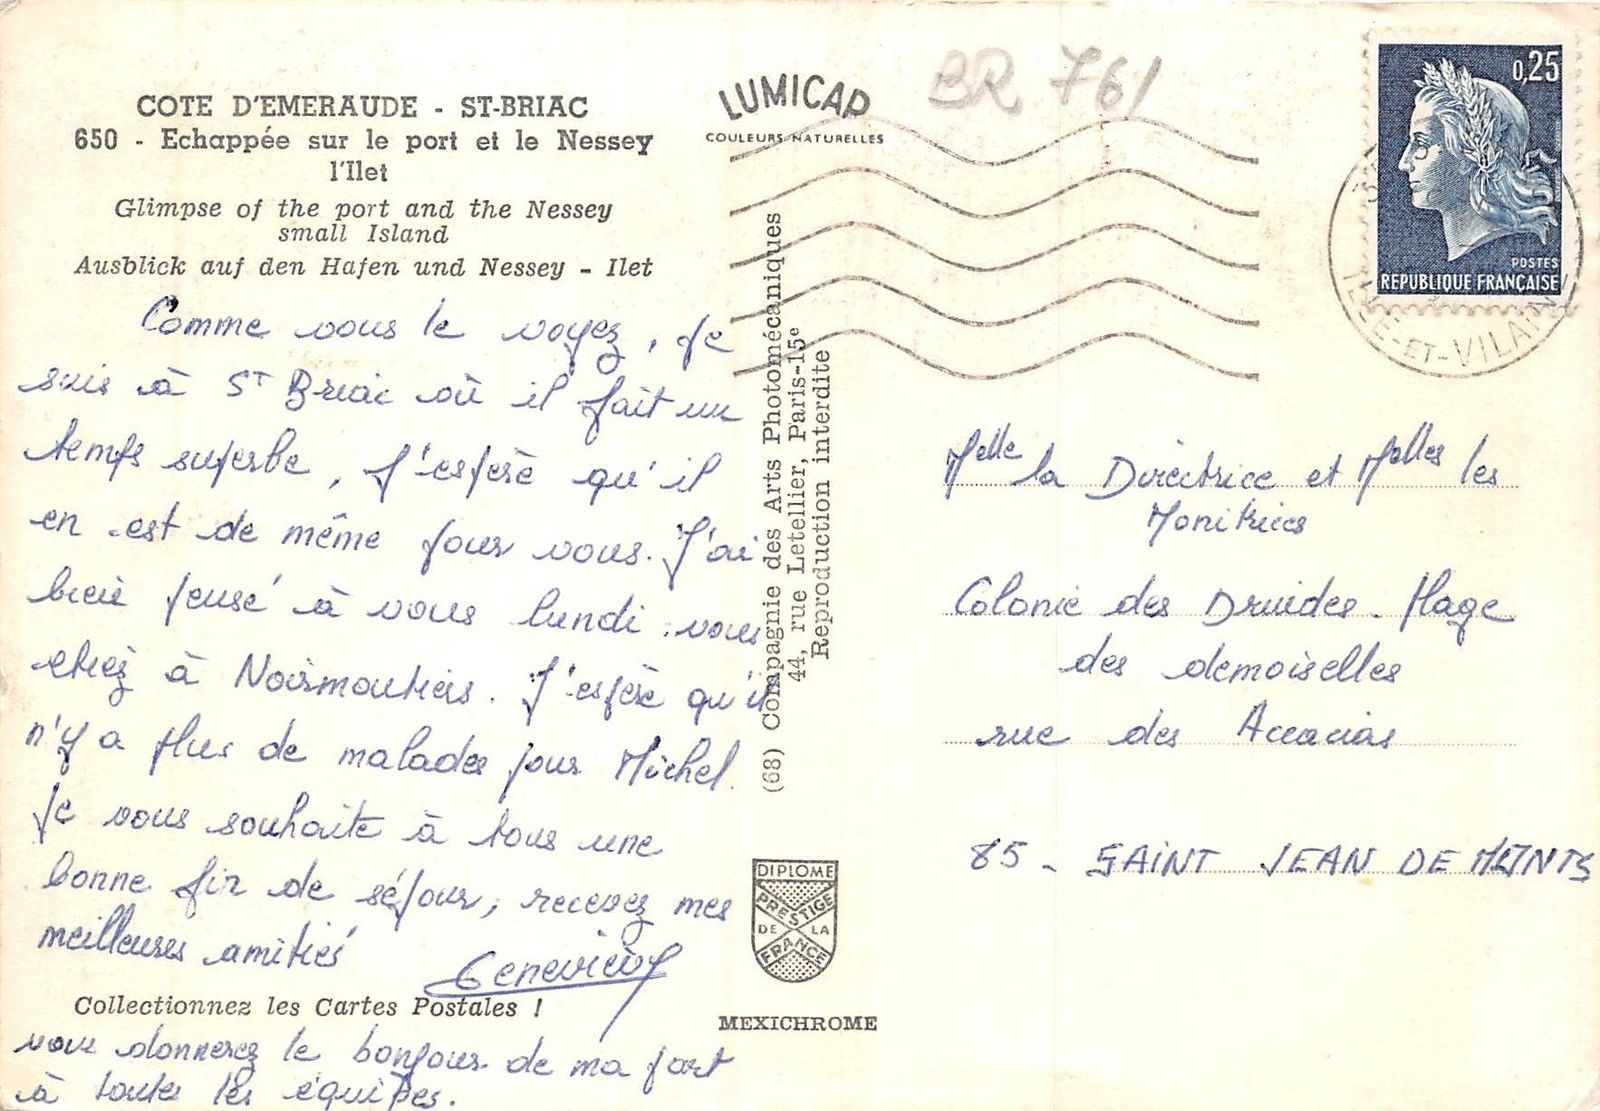 COTE D'EMERAUDE - ST-BRIAC
650 - Echappée sur le port et le Nessey
l'Ilet
Glimpse of the port and the Nessey
small Island
Ausblick auf den Hafen und Nessey - Ilet
Comme vous le voyez, je
suis à St Briac où il fait un
temps superbe, j'espère qu'il
en est de même pour vous. J'ai
bien pensé à vous lundi : vous
etiez à Noirmoutiers. J'espère qu'il
n'y a plus de malades pour Michel.
Je vous souhaite à tous une
bonne fin de séjour, recevez mes
meilleures amitiés
Geneviève
Collectionnez les Cartes Postales !
vous donnerez le bonjour de ma part
à toutes les équipes.
LUMICAP
COULEURS NATURELLES
BR 761
(68) Compagnie des Arts Photomécaniques
44, rue Letellier, Paris-15e
Reproduction interdite
DIPLOME
PRESTIGE
DE LA
FRANCE
MEXICHROME
0,25
POSTES
REPUBLIQUE FRANÇAISE
ILLE-ET-VILAINE
Melle la Directrice et Melles les
Monitrices
Colonie des Druides. Plage
des demoiselles
rue des Accacias
85 - SAINT JEAN DE MONTS